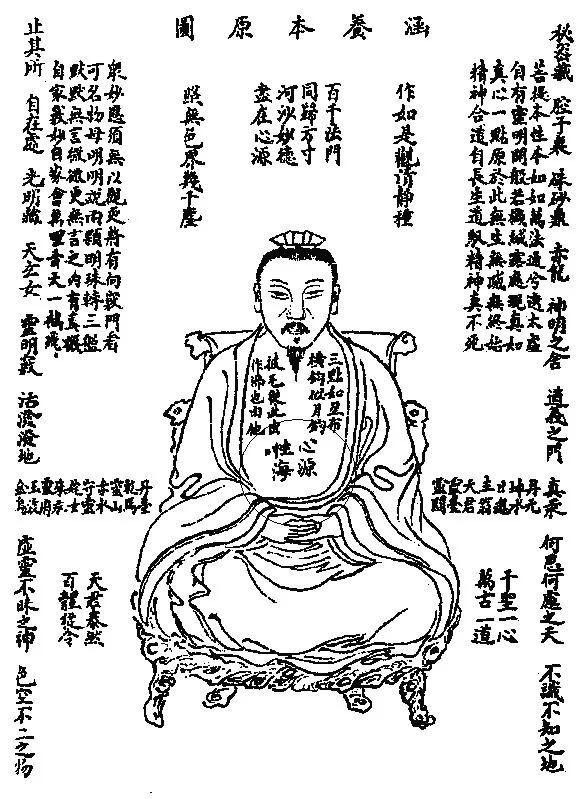 涵養本原圖
秘密藏 腔子裏 硃砂鼎 赤龍 神明之舍 道義之門 真汞 何思何慮之天 不識不知之地
菩提本性本如如萬法通兮透太虛
自有靈明開般若機緘露處現真如
真心一點原於此無生無滅無終始
精神合道自長生道馭精神真不死
作如是觀清靜種
百千法門
同歸方寸
河沙妙德
盡在心源
照無色界幾千塵
眾妙應須無以觀更將有向竅門看
可名物母明明說兩顆明珠轉一盤
默默無言微更無言之內有真機
自家妙自家會無青天一鶴飛
止其所 自在處 光明藏 天玄女 靈明竅 活潑潑地 虛靈不昧之神 色空不二之物
三點如星布
橫鈎似月鈎
披毛從此出
作佛也由他
心源
性海
丹元
坤水
日魂
主翁
天君
靈臺
靈關
丹臺
乾馬
靈山
赤水
守靈
姹女
金烏
千聖一心
萬古一道
天君泰然
百體從令